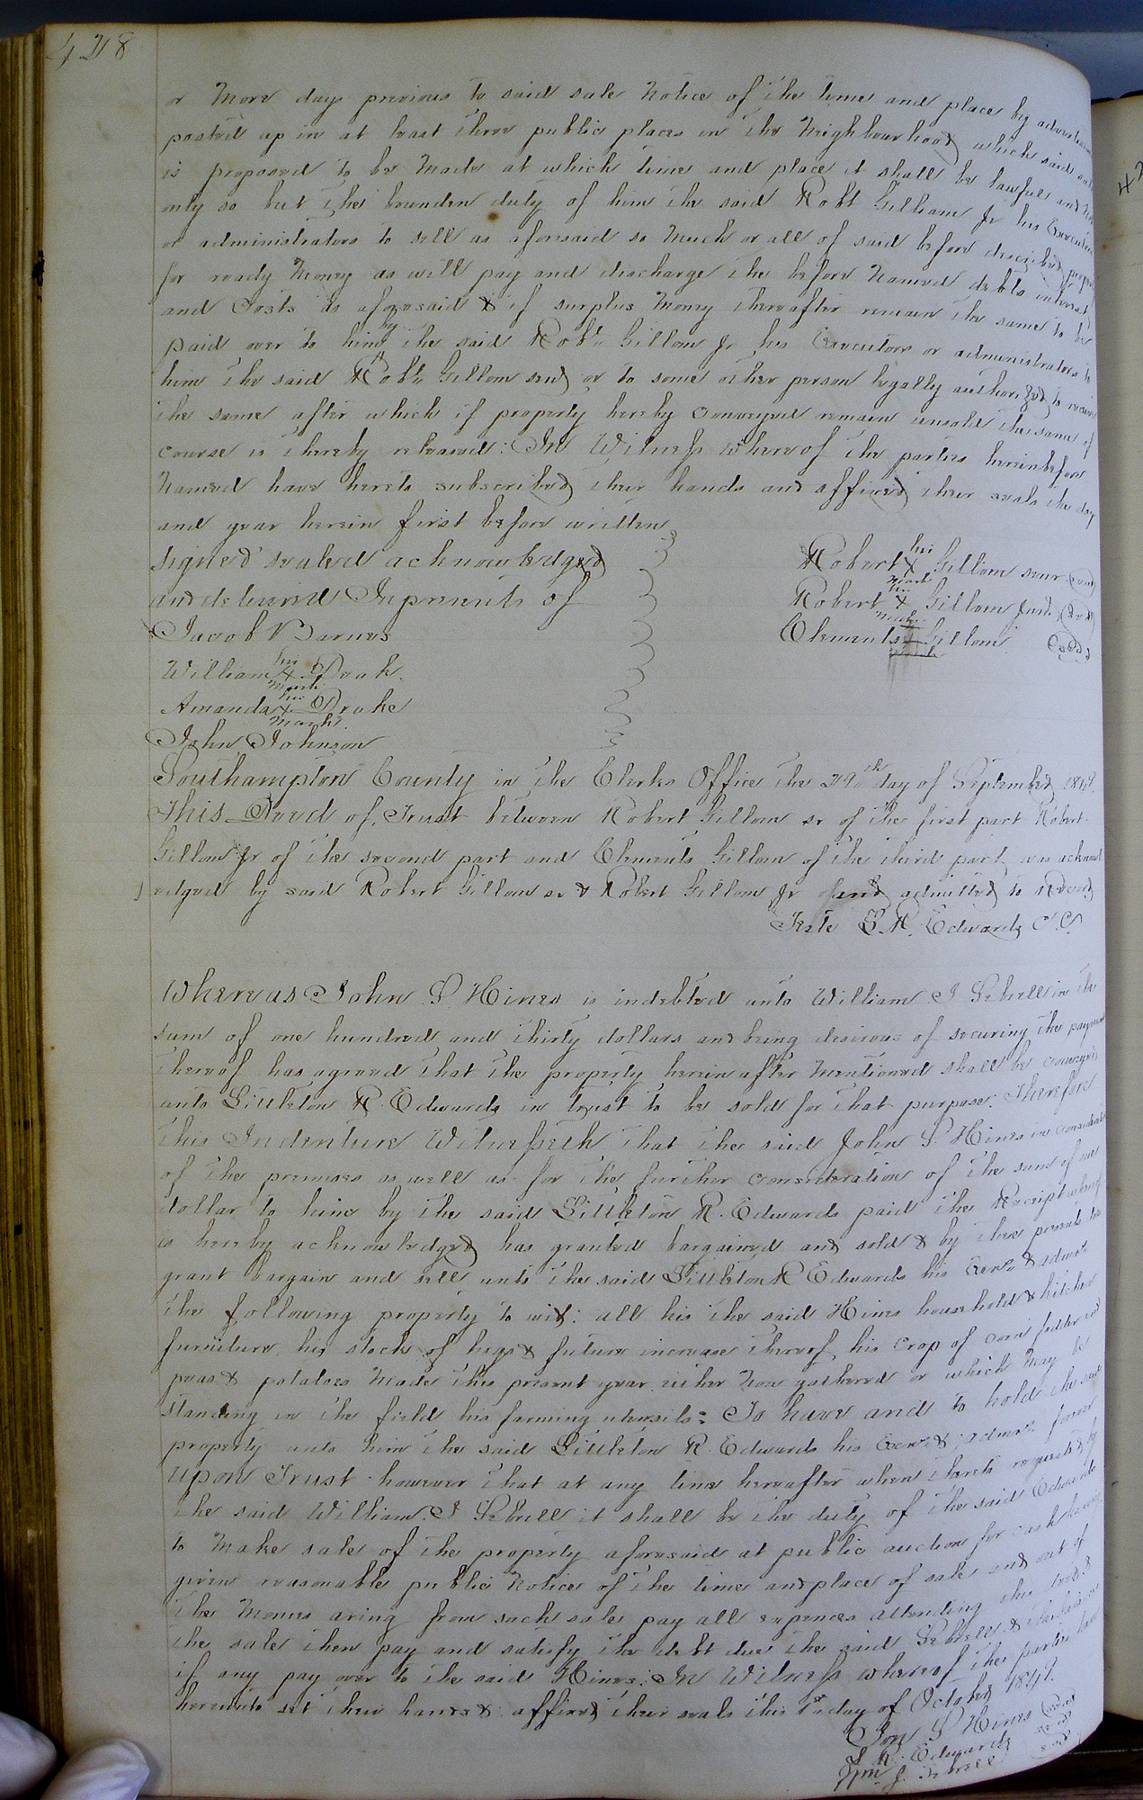 428
or more days previous to said sale notice of the time and place by
posted up in at least three public places in the Neighbourhood which said
is proposed to be made at which time and place it shall be lawful and not
only so but the bounden duty of him the said Robt Gilliam Jr his Executors
or administrators to sell as aforesaid so much or all of said before described
for ready money as will pay and discharge the before named debts interest
and Costs as aforesaid & if surplus money thereafter remain the same to be
paid over to him by the said Robt. Gillom Jr his Executors or administrators to
him the said Robt. Gillom senr or to some other person legally authorized to receive
the same after which if property hereby conveyed remain unsold the same of
course is thereby released: In Witness whereof the parties hereinbefore
named have hereto subscribed their hands and affixed their seals the day
and year herein first before written
signed sealed acknowledged
and delivered In presents of
Jacob Barnes
William his X mark Drake
Amanda his X mark Drake
John Johnson
Robert his X mark Gillom senr (seal)
Robert his X mark Gillom junr (seal)
Clements Gillom (seal)
Southampton County in the Clerks Office the 29th day of September
This Deed of Trust between Robert Gillom sr of the first part Robert
Gillom Jr of the second part and Clements Gillom of the third part was acknowl
edged by said Robert Gillom sr & Robert Gillom Jr and admitted to Record
Teste L. R. Edwards C. C.
Whereas John S Hines is indebted unto William J Sebrell in the
sum of one hundred and thirty dollars and being desirous of securing the payment
thereof has agreed that the property herein after mentioned shall be conveyed
unto Littleton R. Edwards in trust to be sold for that purpose: Therefore
this Indenture Witnesseth that the said John S Hines in consideration
of the premises as well as for the further consideration of the sum of one
dollar to him by the said Littleton R. Edwards paid the Receipt whereof
is hereby acknowledged has granted bargained and sold & by these presents does
grant bargain and sell unto the said Littleton R Edwards his Exors & admrs
the following property to wit: all his the said Hines household & kitchen
furniture his stock of hogs & future increase thereof his crop of corn fodder and
peas & potatoes made this present year either now gathered or which may be
standing in the field his farming utensils: To have and to hold the said
property unto him the said Littleton R. Edwards his Exors & admrs forever
Upon Trust however that at any time hereafter when thereto required by
the said William J Sebrell it shall be the duty of the said Edwards
to make sale of the property aforesaid at public auction for cash having
given reasonable public notice of the time and place of sale and out of
the monies aring from such sale pay all expences attending this trust
the sale then pay and satisfy the debt due the said Sebrell &
if any pay over to the said Hines: In Witness whereof the parties have
hereunto set their hands & affixed their seals this 1st day of October
Jno S Hines (seal)
L R. Edwards (seal)
Wm J. Sebrell (seal)